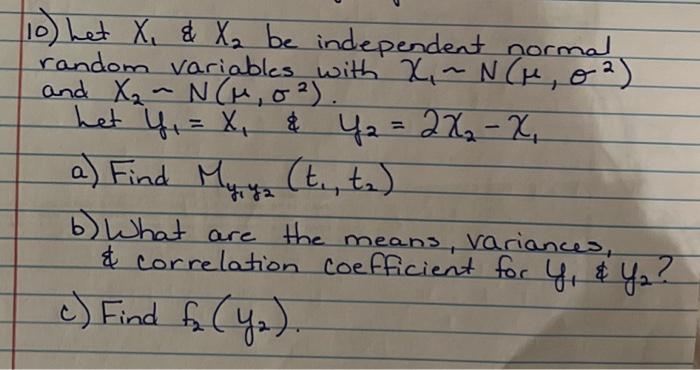 10) Let X₁ & X₂ be independent normal
random variables with X₁ ~ N(μ, σ²)
and X₂ ~ N(μ, σ²).
Let Y₁ = X₁ & Y₂ = 2X₂ - X₁
a) Find M_y₁y₂ (t₁, t₂)
b) What are the means, variances,
& correlation coefficient for y₁ & y₂?
c) Find f₂(y₂).